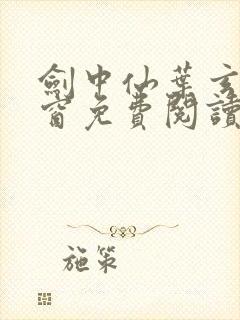 劍中仙葉玄
窗免費閱讀
施策